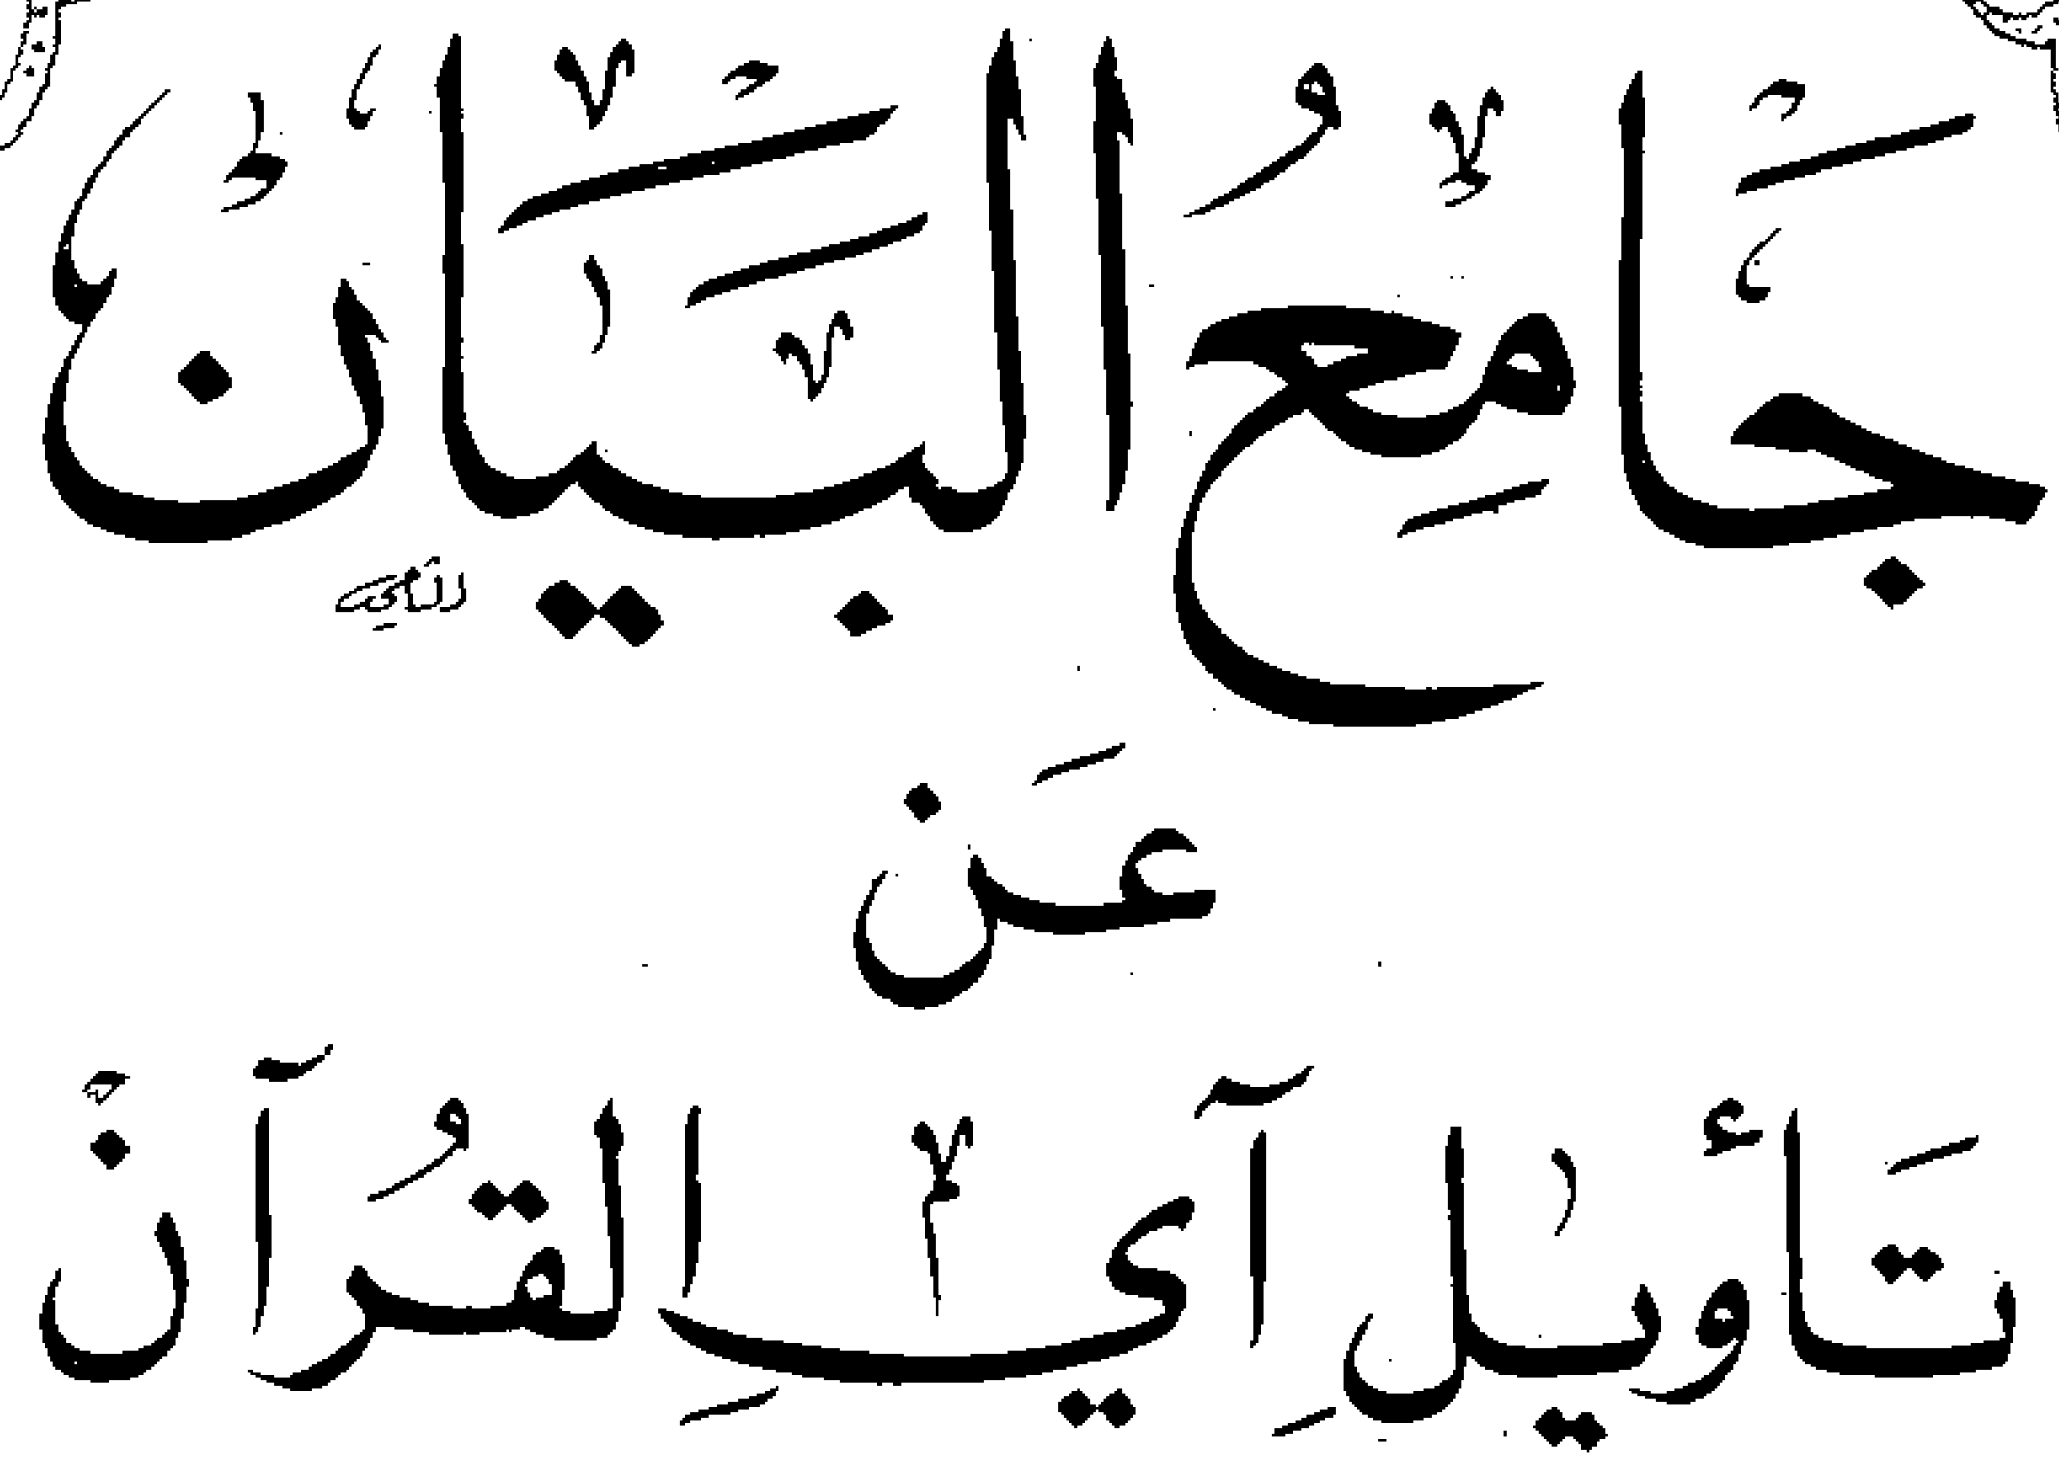 جَامِعُ البَيَانْ
عَن
تَأويلِ آيِ القُرآنْ